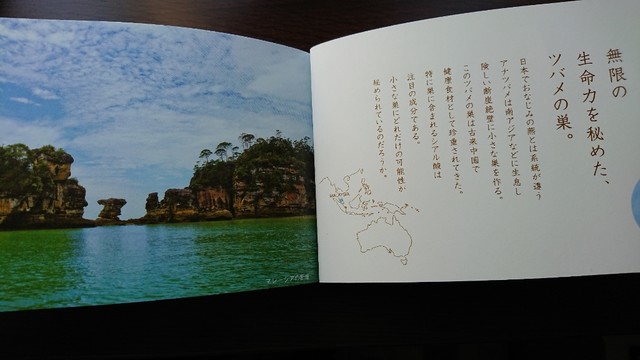 無限の
生命力を秘めた、
ツバメの巣。
日本でおなじみの燕とは系統が違う
アナツバメは南アジアなどに生息し
険しい断崖絶壁に小さな巣を作る。
このツバメの巣は古来中国で
健康食材として珍重されてきた。
特に巣に含まれるシアル酸は
注目の成分である。
小さな巣にどれだけの可能性が
秘められているのだろうか。
MALAYSIA